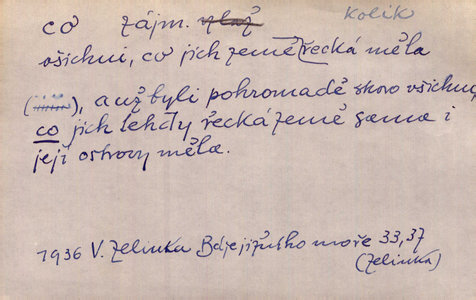 co zájm. Kolik
všichni, co jich země řecká měla
( ), a už byli pohromadě skoro všichni,
co jich tehdy řecká země sama i
její ostrovy měla.
1936 V. Zelinka Báje jižního moře 33,37
(Zelinka)